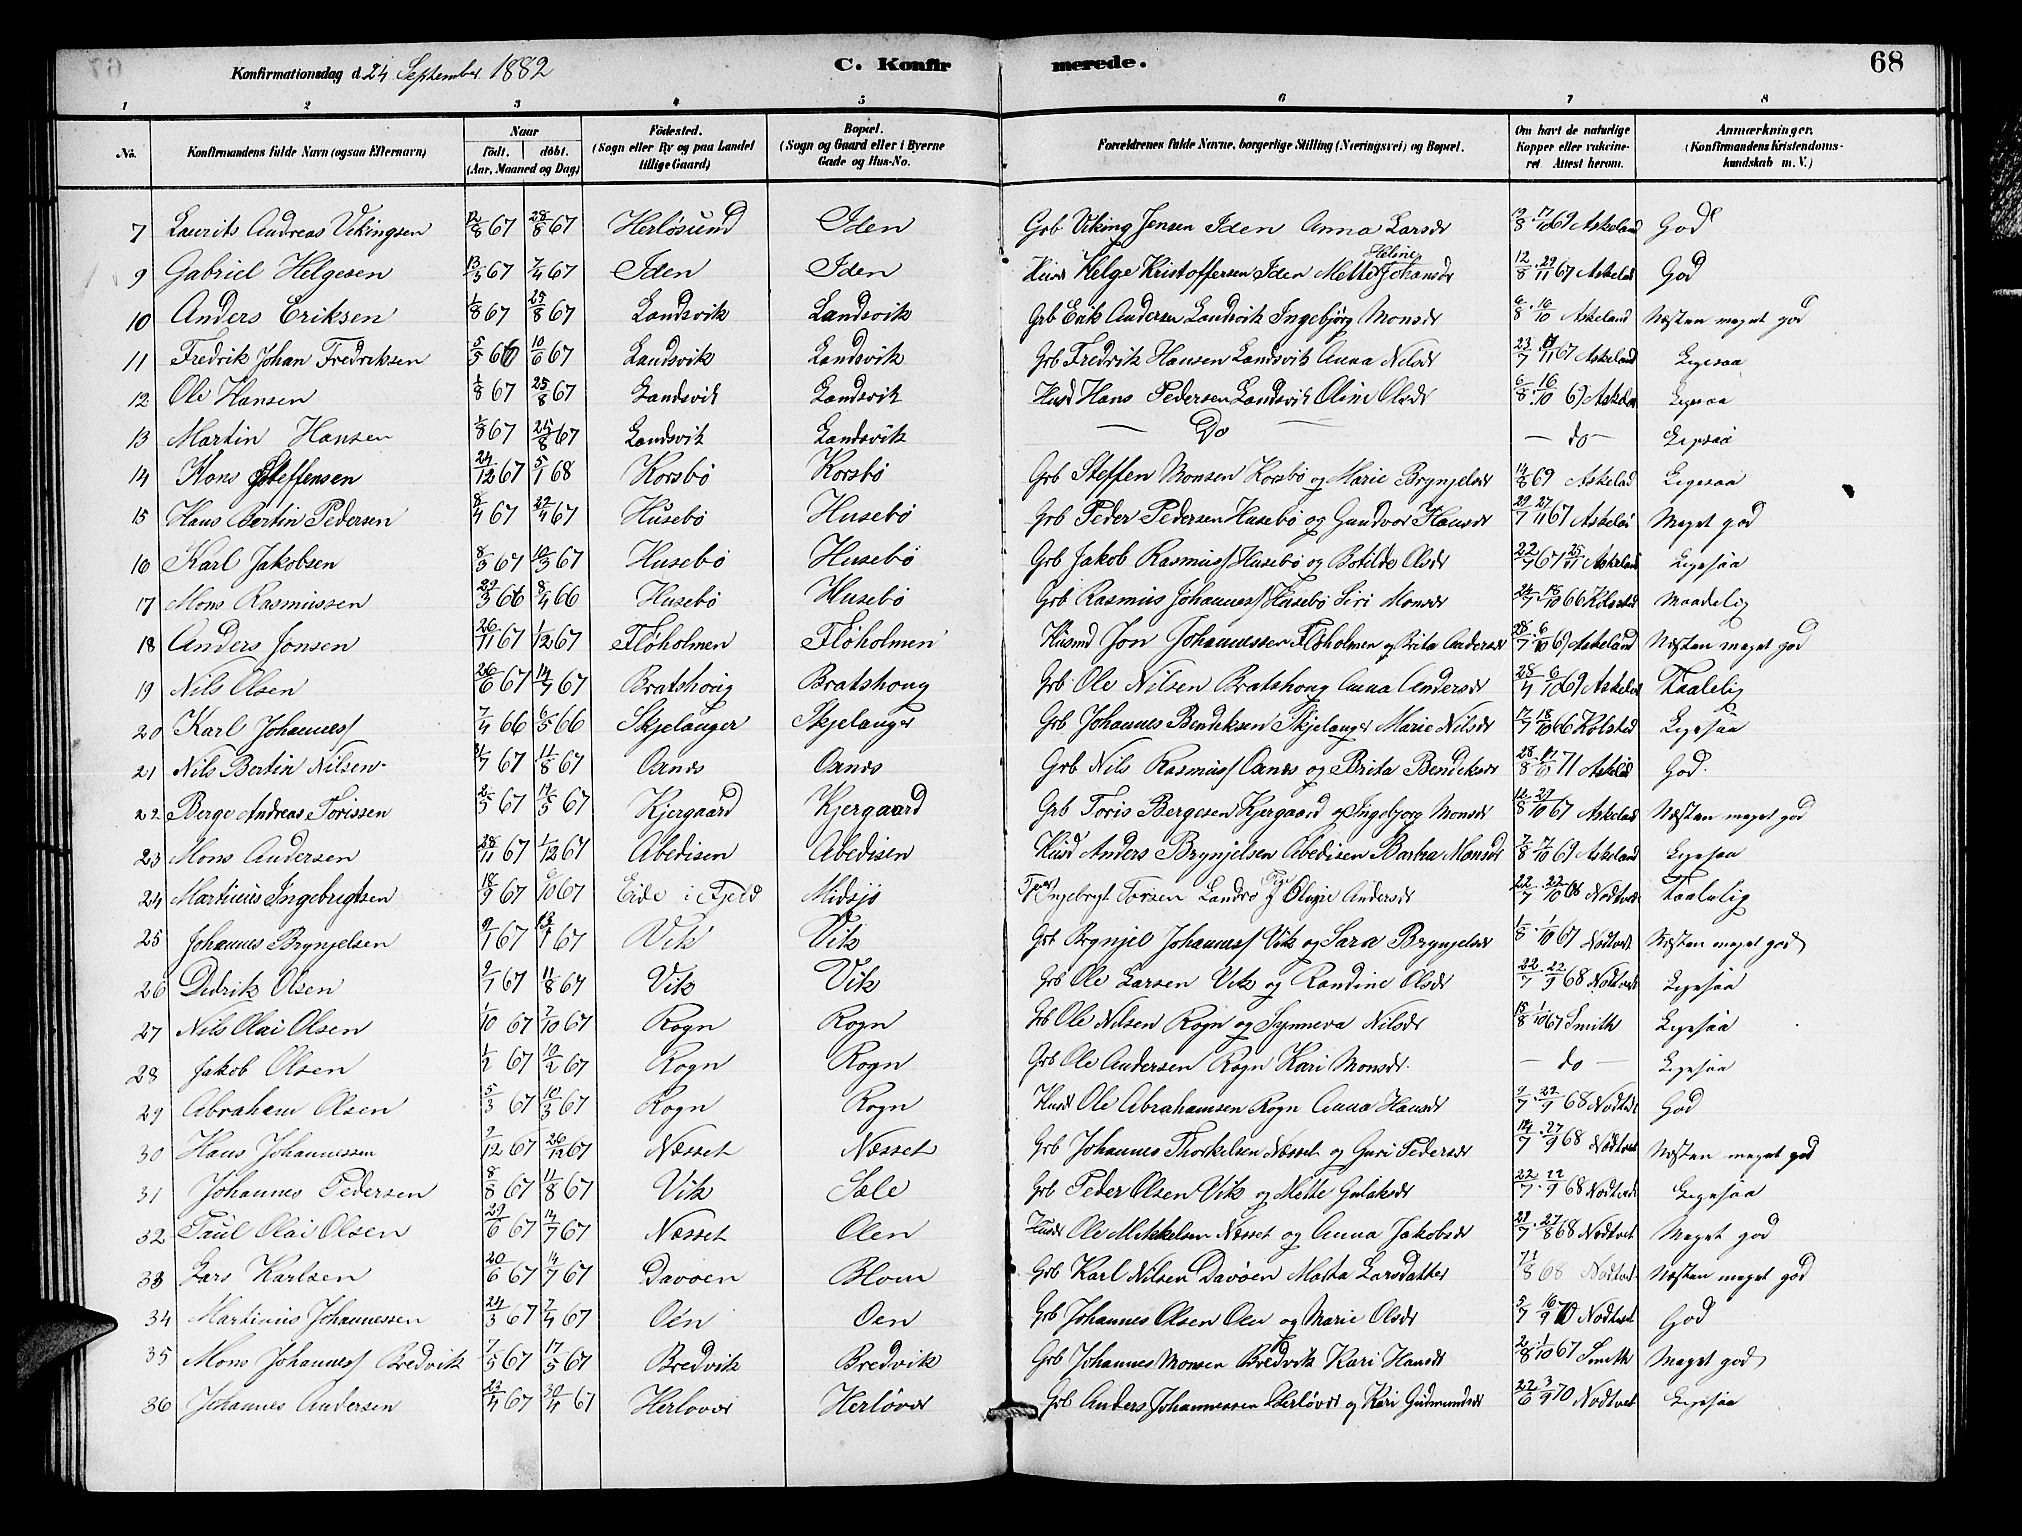 Konfirmationsdag d. 24 September 1882 C. Konfirmerede. 68
1 2 3 4 5 6 7 8
No. Konfirmandens fulde Navn (ogsaa Efternavn) Naar födt. döbt. (Aar, Maaned og Dag) Födested. (Sogn eller By og paa Landet tillige Gaard) Bopæl. (Sogn og Gaard eller i Byerne Gade og Hus-No. Forældrenes fulde Navne, borgerlige Stilling (Næringsvei) og Bopæl. Om havt de naturlige Kopper eller vakcineret Attest herom. Anmærkninger. (Konfirmandens Kristendomskundskab m. V.)
7 Laurits Andreas Vikingsen 12/8 67 28/8 67 Herløsund Iden Grb Viking Jensen Iden Anna Larsdr Askeland God
9 Gabriel Helgesen 13/3 67 7/4 67 Iden Iden Husm Helge Kristoffersen Iden Mette Heline Johansdr 12/8 29/11 67 Askelad God
10 Anders Eriksen 1/8 67 25/8 67 Landsvik Landsvik Grb Erik Andersen Landsvik Ingebjørg Monsdr 6/8 16/10 Askeland Næsten meget god
11 Fredrik Johan Fredriksen 5/5 66 10/6 67 Landsvik Landsvik Grb Fredrik Hansen Landsvik Anna Nilsdr 23/7 11 67 Askeland Ligesaa
12 Ole Hansen 1/8 67 25/8 67 Landsvik Landsvik Husd Hans Pedersen Landsvik Oline Olsdr 6/8 16/10 69 Askelad Ligesaa
13 Martin Hansen 1/8 67 25/8 67 Landsvik Landsvik — Do — — do — Ligesaa
14 Hans Steffensen 24/12 67 5/1 68 Korsbø Korsbø Grb Steffen Monsen Korsbø og Marie Brynjelsdr 14/8 69 Askelad Ligesaa
15 Hans Bertin Pedersen 8/4 67 22/4 67 Husebø Husebø Grb Peder Pedersen Husebø og Gundvor Hansdr 29/7 27/11 67 Askelad Meget god
16 Karl Jakobsen 8/3 67 10/3 67 Husebø Husebø Grb Jakob Rasmuss Husebø og Botilde Olsdr 22/7 67 25/11 Askeland Ligesaa
17 Mons Rasmussen 29/3 66 8/4 66 Husebø Husebø Grb Rasmus Johanness Husebø Siri Monsdr 24/7 18/10 66 Kolsted Maadelig
18 Anders Jonsen 26/11 67 1/12 67 Fløholmen Fløholmen Husmd Jon Johannessen Fløholmen og Brita Andersdr 28/7 6/10 69 Askeland Næsten meget god
19 Nils Olsen 26/6 67 14/7 67 Bratshoug Bratshoug Grb Ole Nilsen Bratshoug Anna Andersdr 28/4 6/10 69 Askelad Taalelig
20 Karl Johanness 7/4 66 6/5 66 Skjelanger Skjelanger Grb Johannes Bendiksen Skjelanger Marie Nilsdr 17/7 18/10 66 Kolsted Ligesaa
21 Nils Bertin Nilsen 67 11/8 67 Oanes Oanes Grb Nils Rasmuss Oanes og Brita Bendiksdr 28/8 71 Askelad God.
22 Berge Andreas Torissen 2/5 67 19/5 67 Kjergaard Kjergaard Grb Toris Bergesen Kjergaard og Ingebjørg Monsdr 12/8 29/10 67 Askelad Næsten meget god
23 Mons Andersen 28/11 67 1/12 67 Abedisen Abedisen Husd Anders Brynjelsen Abedisen Barbra Monsdr 7/8 7/10 69 Askeland Ligesaa
24 Martinus Ingebrigtsen 18/9 67 6/10 67 Eide i Fjeld Midsjø Ingebrygt Torsen Landro Olivie Andersdr 22/7 22/10 68 Nodtvedt Taalelig
25 Johannes Brynjelsen 9/1 67 13/1 67 Vik Vik Grb Brynjel Johanness Vik og Sara Brynjelsdr 1/8 1/10 67 Nodtvedt Næsten meget god
26 Didrik Olsen 9/7 67 11/8 67 Vik Vik Grb Ole Larsen Vik og Randine Olsdr 22/7 22/9 68 Nodtvedt Ligesaa
27 Nils Olai Olsen 1/10 67 7/10 67 Rogn Rogn Grb Ole Nilsen Rogn og Synneva Nilsdr 15/8 1/10 67 Smith Ligesaa
28 Jakob Olsen 1/2 67 10/2 67 Rogn Rogn Grb Ole Andersen Rogn Kari Monsdr. — do — Ligesaa
29 Abraham Olsen 5/3 67 10/3 67 Rogn Rogn Husd Ole Abrahamsen Rogn Anna Hansdr 9/7 29/9 68 Nodtvedt God
30 Hans Johannessen 9/12 67 26/12 67 Næsset Næsset Grb Johannes Thorkelsen Næsset og Guri Pedersdr 14/7 27/9 68 Nodtvet Næsten meget god
31 Johannes Pedersen 8/8 67 11/8 67 Vik Sæle Grb Peder Olsen Vik og Mette Gulaksdr 22/7 22/9 68 Nodtvedt Ligesaa
32 Paul Olai Olsen 29/6 67 14/7 67 Næsset Oen Husd Ole Mikkelsen Næsset og Anna Jakobsdr 28/7 27/8 68 Nodtvet Meget god
33 Lars Karlsen 20/6 67 14/7 67 Davøen Blom Grb Karl Nilsen Davøen Marta Larsdatter 68 Nodtvet Næsten meget god
34 Martinus Johannessen 24/3 67 7/4 67 Oen Oen Grb Johannes Olsen Oen og Marie Olsdr 5/7 16/9 70 Nodtvet God
35 Mons Johanness Bredvik 7/5 67 17/5 67 Bredvik Bredvik Grb Johannes Monsen Bredvik Kari Hansdr 2/8 1/10 67 Smith Meget god
36 Johannes Andersen 23/4 67 30/4 67 Herløver Herløver Grb Anders Johannessen Herløver og Kari Gudmundsdr 22/6 3/9 70 Nodtvet Ligesaa